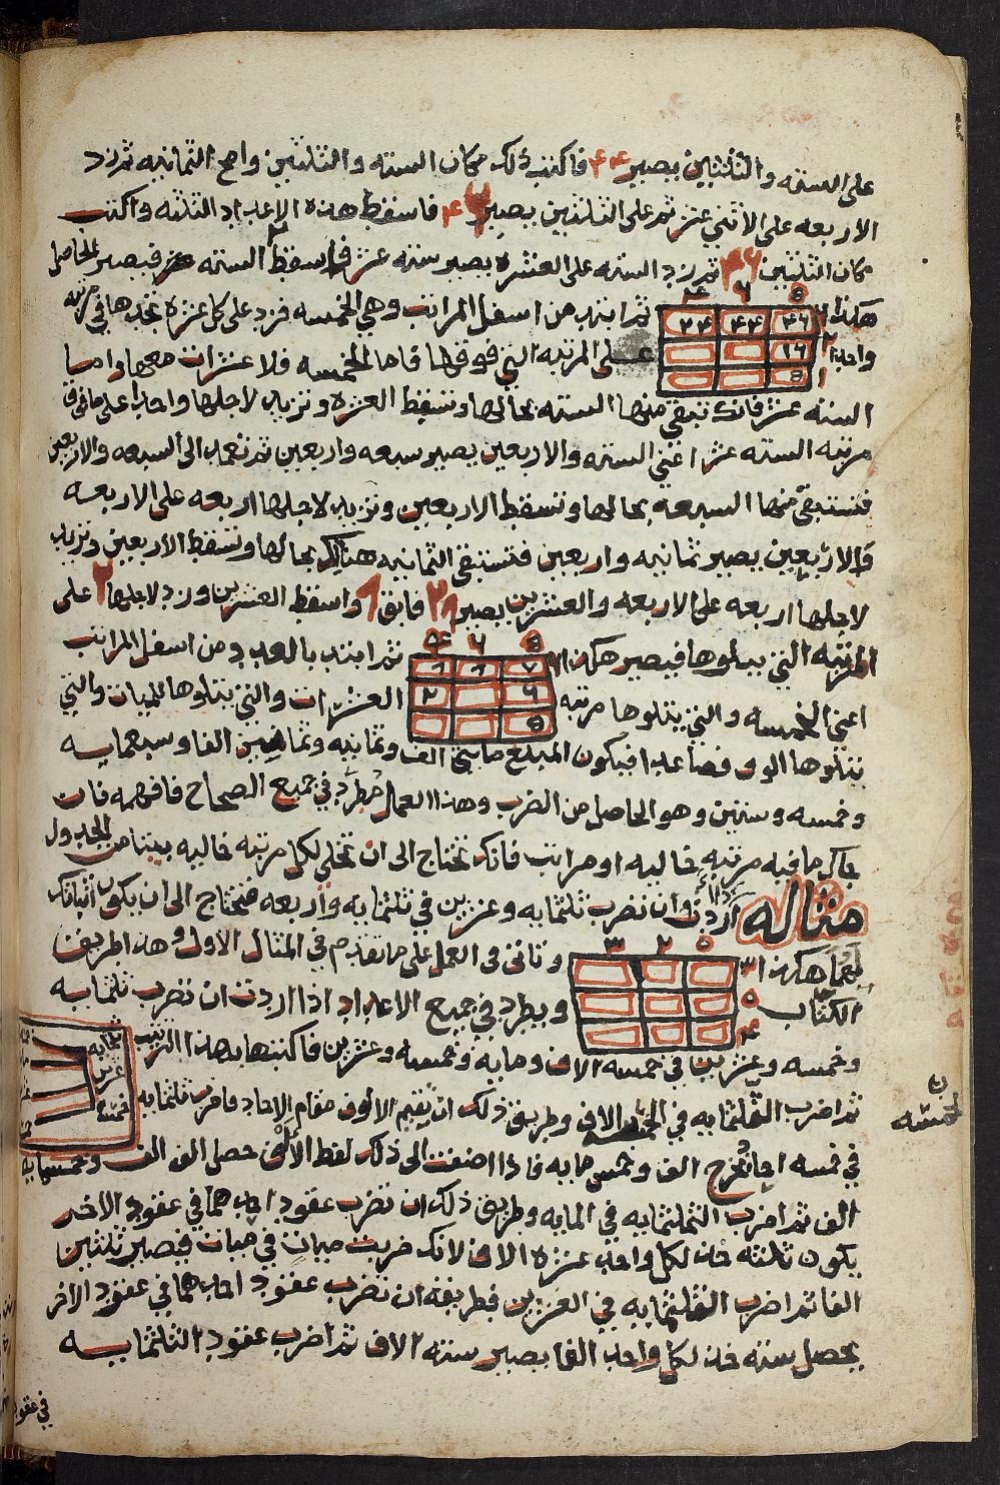 على الستة والثلثين يصير ٤٤ فاكتب ذلك مكان الستة والثلثين وامح الثمانيه ثم زد
الاربعه على الاثني عشر ثم على الثلثين يصير ٤٦ فاسقط هذه الاعداد الثلثه واكتب
مكان الثلثين ٤٦ ثم زد الستة على العشره يصير سته عشر فاسقط السته عشر فيصير الحاصل
هكذا ثم ابتد من اسفل المراتب وهي الخمسه فزد على كل عشرة تجدها في مرتبه
٤ ٦ ٥
٢٤ ٤٤ ٤٦ ٣
١٦ ٢
٥ ١
واحدا على المرتبه التي فوقها فاما الخمسه فلا عشرات معها واما
السته عشر فانك تبقي منها السته بحالها وتسقط العشره وتزيد لاجلها واحدا على ما فوق
مرتبه السته عشر اعني السته والاربعين يصير سبعه واربعين ثم تعمد الى السبعه والاربعين
فتستبقي منها السبعه بحالها وتسقط الاربعين وتزيد لاجلها اربعه على الاربعه
والاربعين يصير ثمانيه واربعين فتستبقي الثمانيه هنالك بحالها وتسقط الاربعين وتزيد
لاجلها اربعه على الاربعه والعشرين يصير ٢٨ فابق ٨ واسقط العشرين وزد لاجلها ٢ على
المرتبه التي يتلوها فيصير هكذا ثم ابتد بالعدد من اسفل المراتب
٤ ٦ ٥
٨ ٨ ٧
٢ ٦
٥
اعني الخمسه والتي يتلوها مرتبه العشرات والتي يتلوها للميات والتي
يتلوها الوف فصاعدا فيكون المبلغ مايتي الف وثمانيه وثمانين الفا وسبعمايه
وخمسه وستين وهو الحاصل من الضرب وهذا العمل مطرد في جميع الصحاح فافهمه فان
جاك ما فيه مرتبه خاليه او مراتب فانك تحتاج الى ان تخلي لكل مرتبه خاليه بيتا من الجدول
مثاله اردنا ان نضرب ثلثمايه وعشرين في ثلثمايه واربعه فنحتاج الى ان يكون اثباتك
لهما هكذا وتاتي في العمل على ما تقدم في المثال الاول وهذا طريقت
٣ ٢ ٥
٣
٥
٤
الكتاب ويطرد في جميع الاعداد اذا اردت ان تضرب ثلثمايه
وخمسه وعشرين في خمسه الاف ومايه وخمسه وعشرين فاكتبها بهذا الترتيب
ثم اضرب الثلثمايه في الخمسه الاف وطريق ذلك ان يقيم الالوف مقام الاحاد فاضرب ثلثمايه
في خمسه احاد يخرج الف وخمس مايه فاذا اضفت الى ذلك لفظ الالف حصل الف الف وخمسمايه
الف ثم اضرب الثلثمايه في المايه وطريق ذلك ان تضرب عقود احدهما في عقود الاخر
يكون ثلثه خذ لكل واحد عشرة الاف لانك ضربت ميات في ميات فيصير ثلثين
الفا ثم اضرب الثلثمايه في العشرين فطريقه ان تضرب عقود احدهما في عقود الاخر
يحصل سته خذ لكل واحد الفا يصير سته الاف ثم اضرب عقود الثلثمايه
ن
الخمسه
في عقود